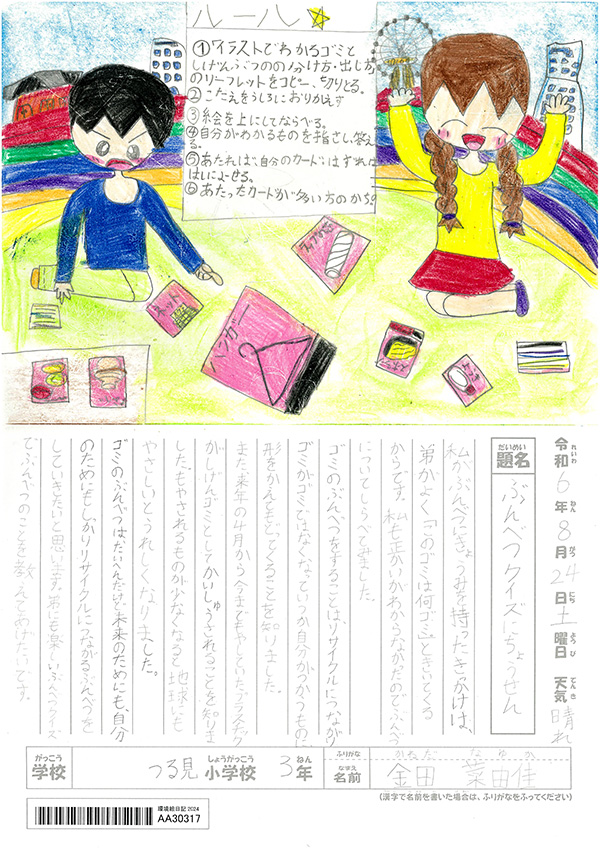 ルール
①イラストでわかるゴミと
しげんぶつの分け方・出しかた
のリーフレットをコピー、切りとる。
②こたえをうしろにおりかえす
③絵を上にしてならべる。
④自分がわかるものを指さし、答え
る。
⑤あたれば、自分のカード、はずれれば
はしによせる。
⑥あたったカードが多い方のかち。
ネット
ハンガー
令和6年8月24日土曜日 天気 晴れ
れいわ ねん がつ にち ようび てんき
だいめい
題名 ぶんべつクイズにちょうせん
私がぶんべつにきょうみを持ったきっかけは、
弟がよく「このゴミは何ゴミ?」ときいてくる
からです。私も正かいがわからなかったのでぶんべつ
についてしらべてみました。
ゴミのぶんべつをすることはリサイクルにつながり
ゴミがゴミではなくなっていい か自分がつかうものに
形をかえてもどってくることを知りました。
また来年の4月から今までもやしていたプラスチック
がしげんゴミとしてかいしゅうされることを知りま
したもやされるものが少なくなると地球にも
やさしいとうれしくなりました。
ゴミのぶんべつはたいへんだけど未来のためにも、自分
のためにもしっかりリサイクルにつながるぶんべつを
していきたいと思います。弟にも楽しいぶんべつクイズ
でぶんべつのことを教えてあげたいです。
がっこう しょうがっこう ねん ふりがな かねだ なゆか
学校 つる見 小学校 3年 なまえ 名前 金田 菜由佳
(漢字で名前を書いた場合は、ふりがなをふってください)
環境絵日記2024
AA30317